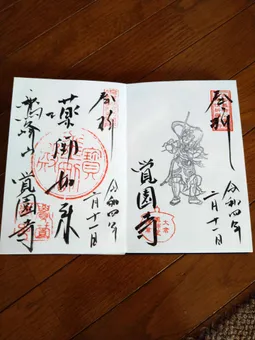 奉拝
令和四年
二月十一日
覚園寺
奉拝
令和四年
二月十一日
薬師如来
鷲峰山
覚園寺